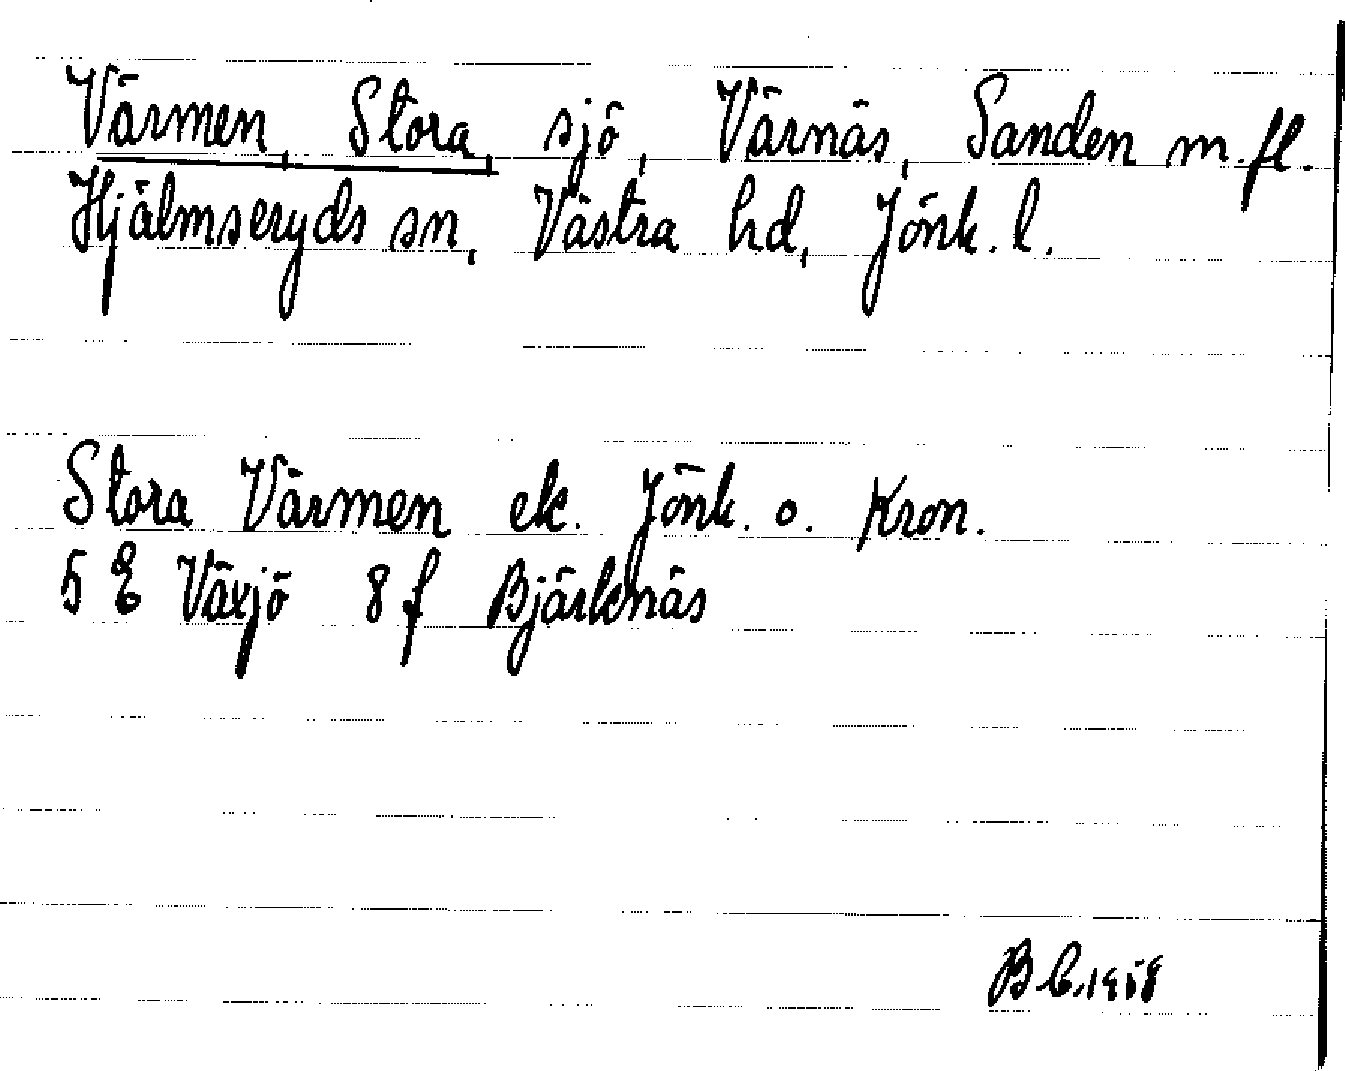 Värmen, Stora, sjö, Värnäs, Sanden m.fl.
Hjälmseryds sn, Västra hd, Jönk. l.
Stora Värmen ek. Jönk. o. Kron.
5 E Växjö 8 f Bjärknäs
B C. 1958